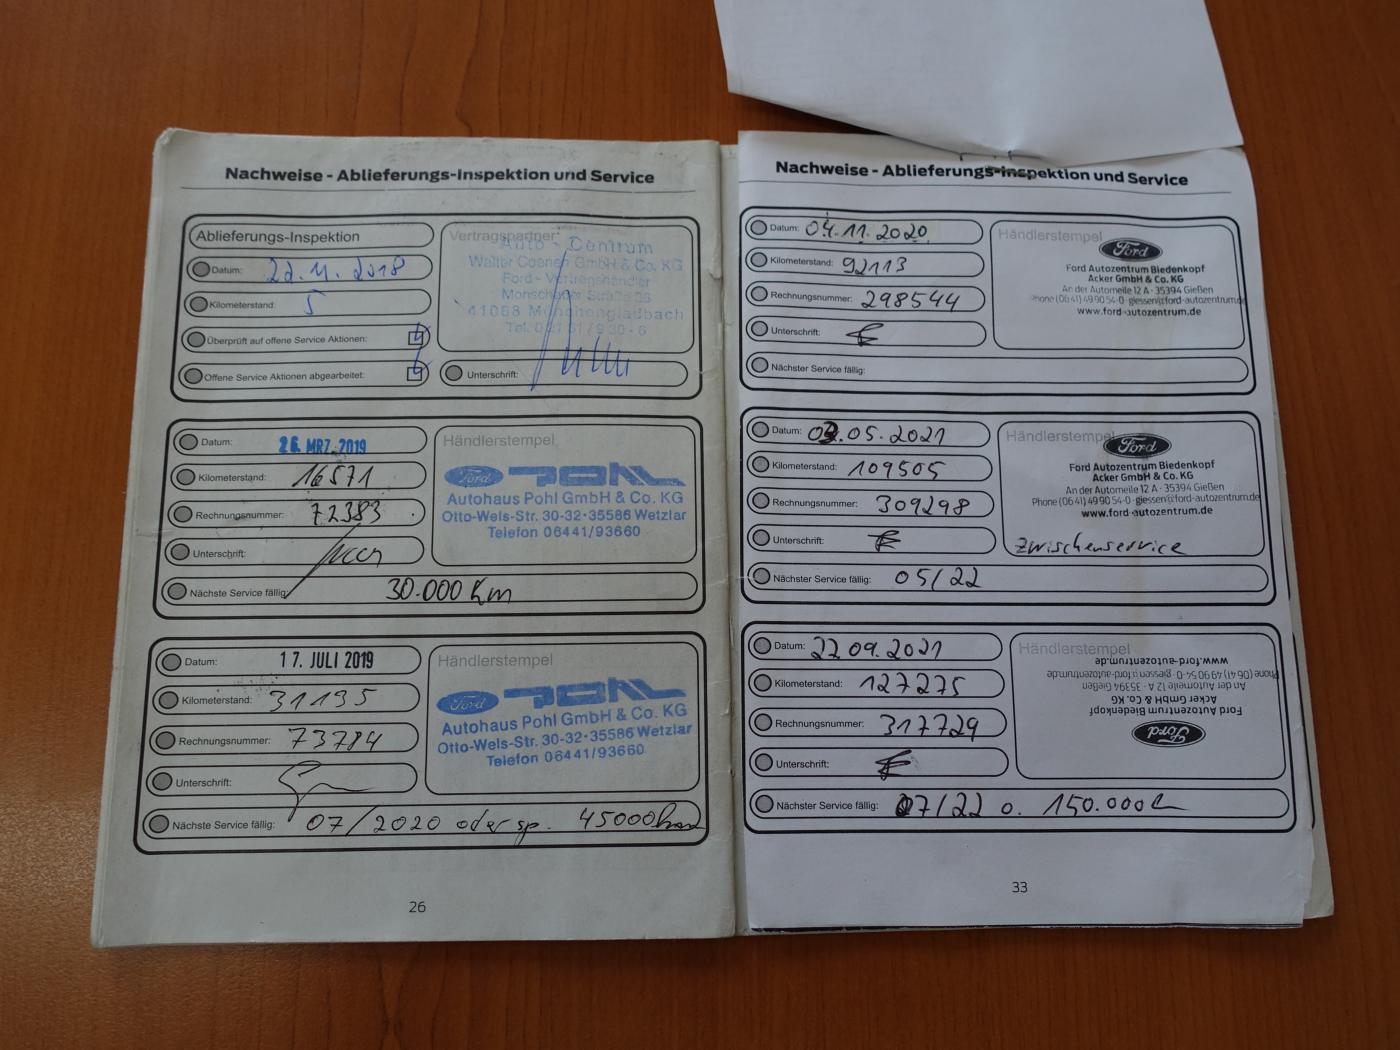 Nachweise - Ablieferungs-Inspektion und Service
Ablieferungs-Inspektion
Datum: 22.11.2018
Kilometerstand: 5
Überprüft auf offene Service Aktionen:
Offene Service Aktionen abgearbeitet:
Vertragspartner:
Auto - Centrum
Walter Coenen GmbH & Co. KG
Ford - Vertragshändler
41068 Mönchengladbach
Unterschrift:
Datum: 26. MRZ. 2019
Kilometerstand: 16571
Rechnungsnummer: 72383
Unterschrift:
Nächste Service fällig: 30.000 Km
Händlerstempel
Ford POHL
Autohaus Pohl GmbH & Co. KG
Otto-Wels-Str. 30-32·35586 Wetzlar
Telefon 06441/93660
Datum: 17. JULI 2019
Kilometerstand: 31135
Rechnungsnummer: 73784
Unterschrift:
Nächste Service fällig: 07/2020 oder sp. 45000km
Händlerstempel
Ford POHL
Autohaus Pohl GmbH & Co. KG
Otto-Wels-Str. 30-32·35586 Wetzlar
Telefon 06441/93660
26
Nachweise - Ablieferungs-Inspektion und Service
Datum: 04.11.2020
Kilometerstand: 92113
Rechnungsnummer: 298544
Unterschrift:
Nächster Service fällig:
Händlerstempel
Ford
Ford Autozentrum Biedenkopf
Acker GmbH & Co. KG
An der Automeile 12 A · 35394 Gießen
Phone (06 41) 49 90 54-0 · giessen@ford-autozentrum.de
www.ford-autozentrum.de
Datum: 03.05.2021
Kilometerstand: 109505
Rechnungsnummer: 309298
Unterschrift:
Nächster Service fällig: 05/22
Händlerstempel
Ford
Ford Autozentrum Biedenkopf
Acker GmbH & Co. KG
An der Automeile 12 A · 35394 Gießen
Phone (06 41) 49 90 54-0 · giessen@ford-autozentrum.de
www.ford-autozentrum.de
Zwischenservice
Datum: 22.09.2021
Kilometerstand: 127275
Rechnungsnummer: 317729
Unterschrift:
Nächster Service fällig: 07/22 o. 150.000
Händlerstempel
Ford
Ford Autozentrum Biedenkopf
Acker GmbH & Co. KG
An der Automeile 12 A · 35394 Gießen
Phone (06 41) 49 90 54-0 · giessen@ford-autozentrum.de
www.ford-autozentrum.de
33